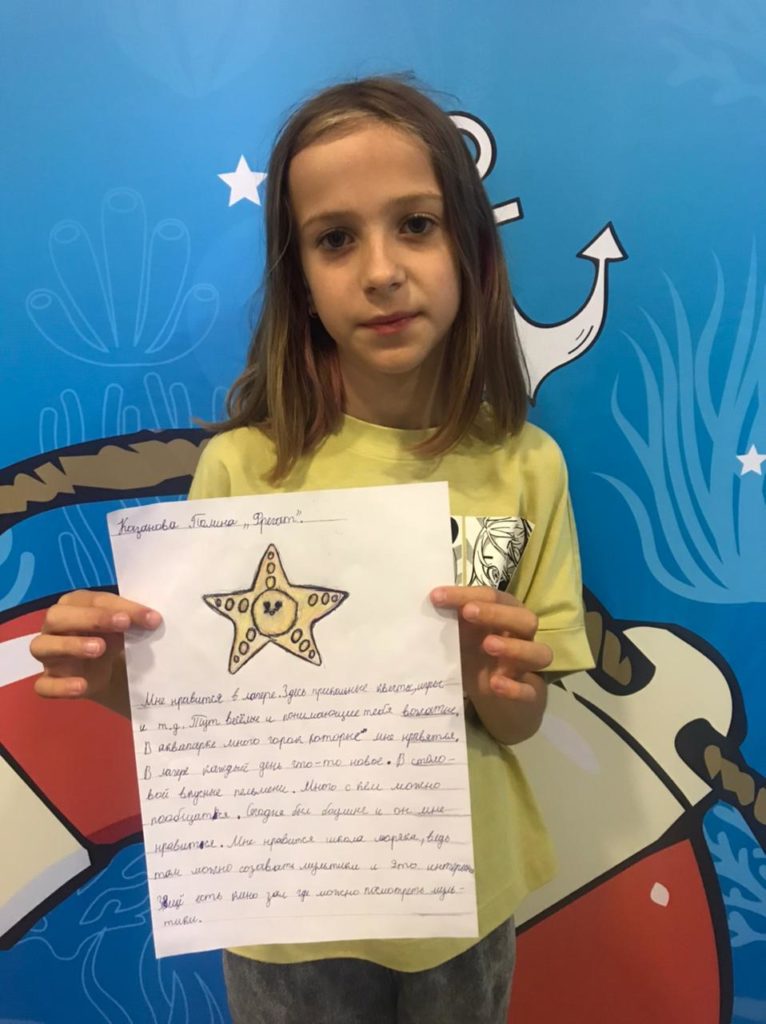 Казанова Полина „Фрегат".
Мне нравится в лагере. Здесь прикольные квесты, игры
и т.д. Тут весёлые и понимающие тебя вожатые,
В аквапарке много горак которые мне нравятся.
В лагере каждый день что-то новое. В столо-
вой вкусные пельмени. Много с кем можно
пообщатся. Сегодня был боулинг и он мне
нравится. Мне нравится школа моряка, ведь
там можно создавать мультики и это интересно
Ещё есть кино зал где можно посмотреть муль-
тики.